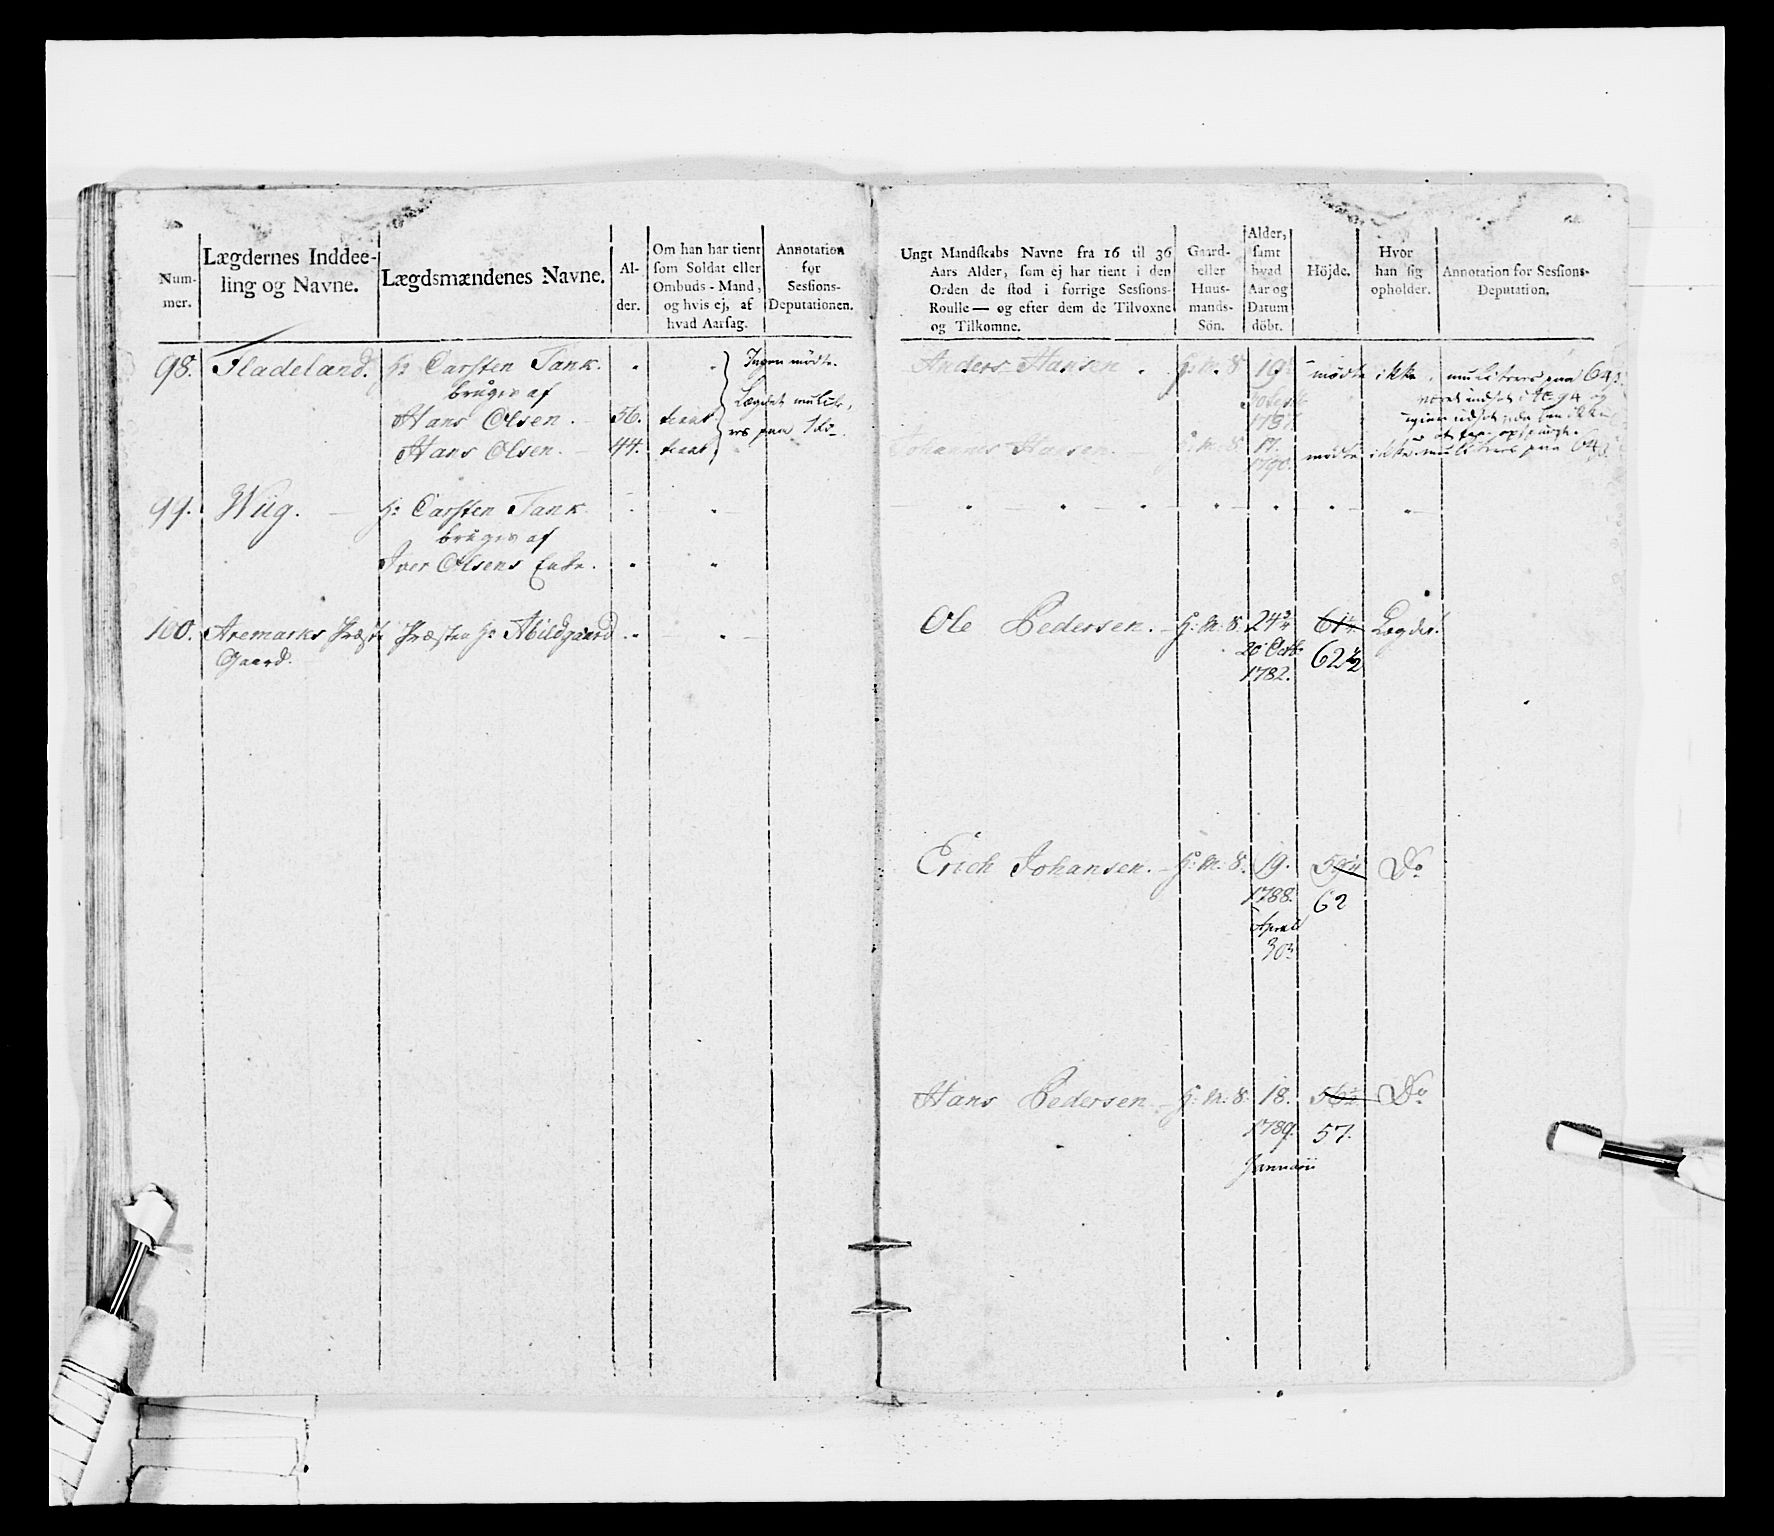 Num-
mer.
Lægdernes Inddee-
ling og Navne.
Lægdsmændenes Navne.
Al-
der.
Om han har tient
som Soldat eller
Ombuds-Mand,
og hvis ej, af
hvad Aarsag.
Annotation
for
Sessions-
Deputationen.
98. Fladeland. Hr Carsten Tank.
bruges af
Hans Olsen. 56.
Hans Olsen. 44.
Ingen mödte.
Lægdet
99. Wiig. Hr Carsten Tank
bruges af
Iver Olsens Enke.
100. Aremarks Præste Præsten Hr Abildgaard
Gaard.
Ungt Mandskabs Navne fra 16 til 36
Aars Alder, som ej har tient i den
Orden de stod i forrige Sessions-
Roulle — og efter dem de Tilvoxne
og Tilkomne.
Gaard-
eller
Huus-
mands-
Sön.
Alder,
samt
hvad
Aar og
Datum
döbt.
Höjde.
Hvor
han sig
opholder.
Annotation for Sessions-
Deputation.
Anders Hansen H. M. S. 19 mödte ikke
Johannes Hansen. H. M. S. 17. mödte ikke
1790.
Ole Pedersen. H: M: S. 24 Lægdet.
20 Octb
1782. 62½
Erich Johansen. H: M: S. 19. Do
1788. 62
April
30
Hans Pedersen. H: M: S. 18. Do
1789. 57.
Januarii